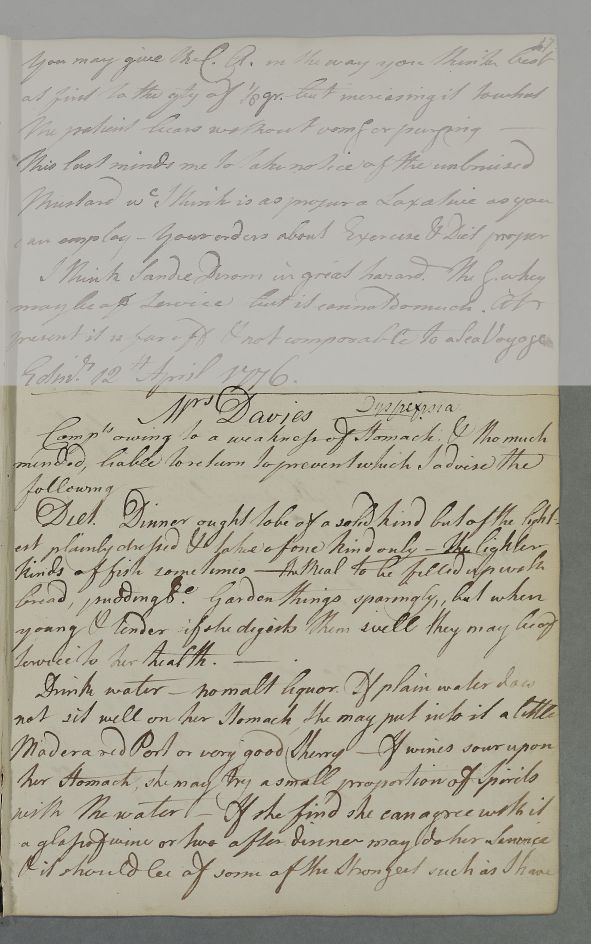 47
You may give the C. A. in the way you think best
at first to the qty of 1/8 gr. but increasing it to what
the patient bears without vomg or purging —
This last minds me to take notice of the unbruised
Mustard wc I think is as proper a Laxative as you
can employ – Your orders about Exercise & Diet proper
I think Sandie in great hazard. The G. whey
may be of Service but it cannot do much. At
present it is far off & not comparable to a Sea Voyage
Edinr. 12th April 1776.
Mrs Davies Dyspepsia
Compts owing to a weakness of Stomach. & tho much
mended, liable to return to prevent which I advise the
following
Diet. Dinner ought to be of a solid kind but of the light-
est plainly dressed & take of one kind only – the lighter
kinds of fish sometimes – the Meal to be filled up with
bread, pudding &c. Garden things sparingly, but when
young & tender if she digests them well they may be of
service to her health. —
Drink water – no malt liquor. If plain water does
not sit well on her Stomach she may put into it a little
Madera red Port or very good Sherry – If wines sour upon
her Stomach, she may try a small proportion of Spirits
with the water – If she find she can agree with it
a glass of wine or two after dinner may do her
& it should be of some of the Strongest such as I have